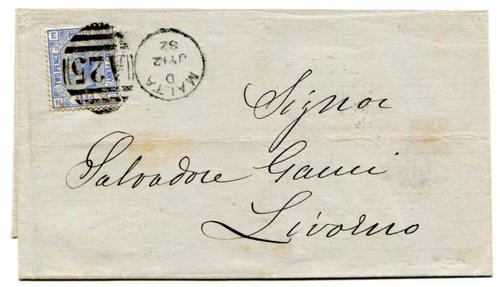 TWO PENCE
A25
MALTA
D
JY 12
82
Signor
Salvadore Gauci
Livorno